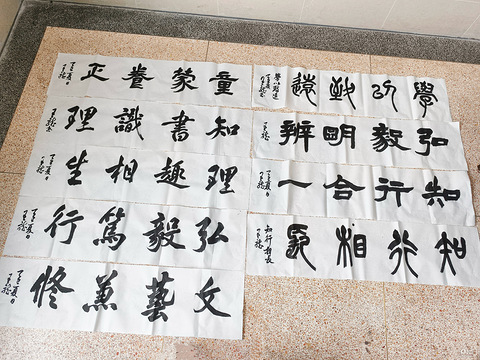 學以致遠
學以致遠
弘毅明辨
知行合一
知行相長
知行相長
童蒙養正
知書識理
理趣相生
弘毅篤行
文藝兼修